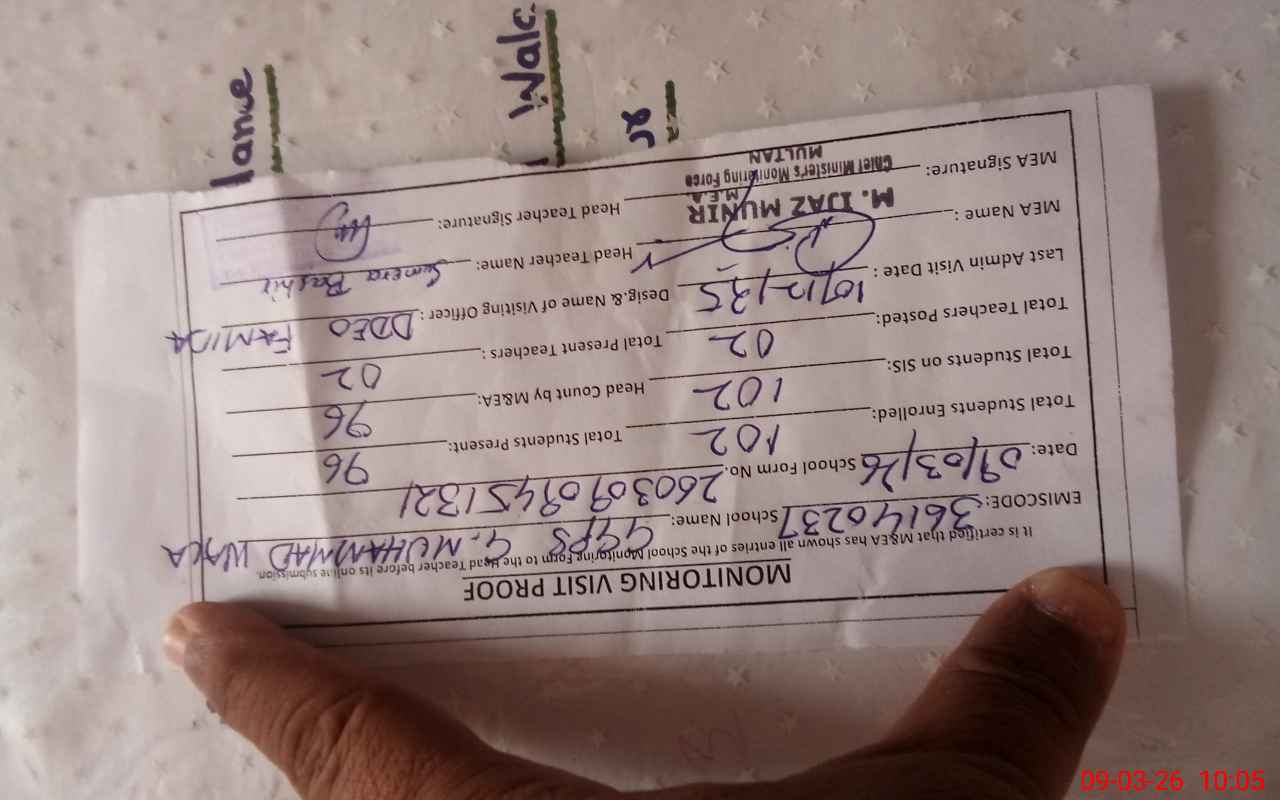 MONITORING VISIT PROOF
It is certified that M&EA has shown all entries of the School Monitoring Form to the Head Teacher before its online submission.
EMISCODE: 36140237 School Name: GGPS G. MUHAMMAD WALA
Date: 09/03/26 School Form No. 26030909451321
Total Students Enrolled: 102 Total Students Present: 96
Total Students on SIS: 102 Head Count by M&EA: 96
Total Teachers Posted: 02 Total Present Teachers : 02
Last Admin Visit Date : 10/12/25 Desig.& Name of Visiting Officer : DDEO FAMIDA
MEA Name : Head Teacher Name: Sumera Bashir
MEA Signature: Head Teacher Signature:
M. IJAZ MUNIR
M.E.A
Chief Minister's Monitoring Force
MULTAN
09-03-26 10:05